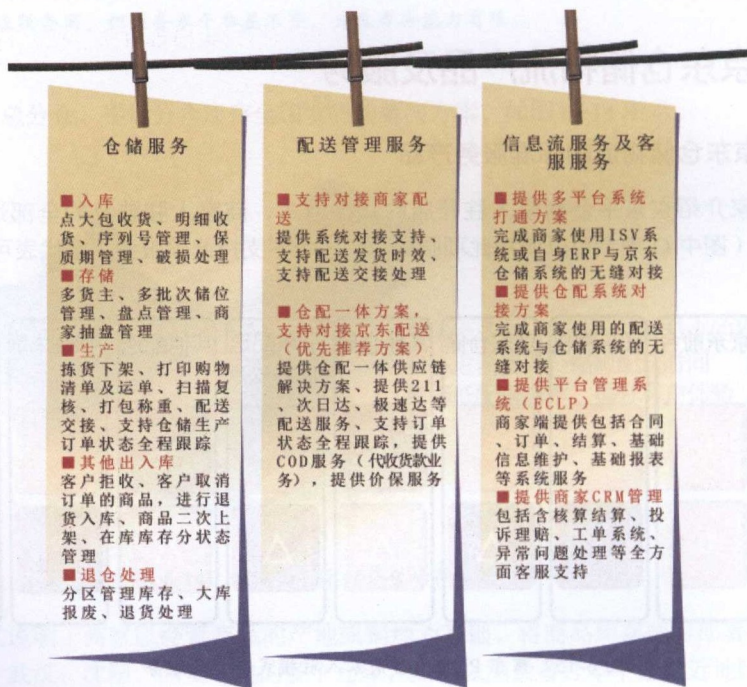 仓储服务
■入库
点大包收货、明细收
货、序列号管理、保
质期管理、破损处理
■存储
多货主、多批次储位
管理、盘点管理、商
家抽盘管理
■生产
拣货下架、打印购物
清单及运单、扫描复
核、打包称重、配送
交接、支持仓储生产
订单状态全程跟踪
■其他出入库
客户拒收、客户取消
订单的商品，进行退
货入库、商品二次上
架、在库库存分状态
管理
■退仓处理
分区管理库存、大库
报废、退货处理
配送管理服务
■支持对接商家配
送
提供系统对接支持、
支持配送发货时效、
支持配送交接处理
■仓配一体方案，
支持对接京东配送
（优先推荐方案）
提供仓配一体供应链
解决方案、提供211
、次日达、极速达等
配送服务、支持订单
状态全程跟踪，提供
COD服务（代收货款业
务），提供价保服务
信息流服务及客
服服务
■提供多平台系统
打通方案
完成商家使用ISV系
统或自身ERP与京东
仓储系统的无缝对接
■提供仓配系统对
接方案
完成商家使用的配送
系统与仓储系统的无
缝对接
■提供平台管理系
统（ECLP）
商家端提供包括合同
、订单、结算、基础
信息维护、基础报表
等系统服务
■提供商家CRM管理
包括含核算结算、投
诉理赔、工单系统、
异常问题处理等全方
面客服支持